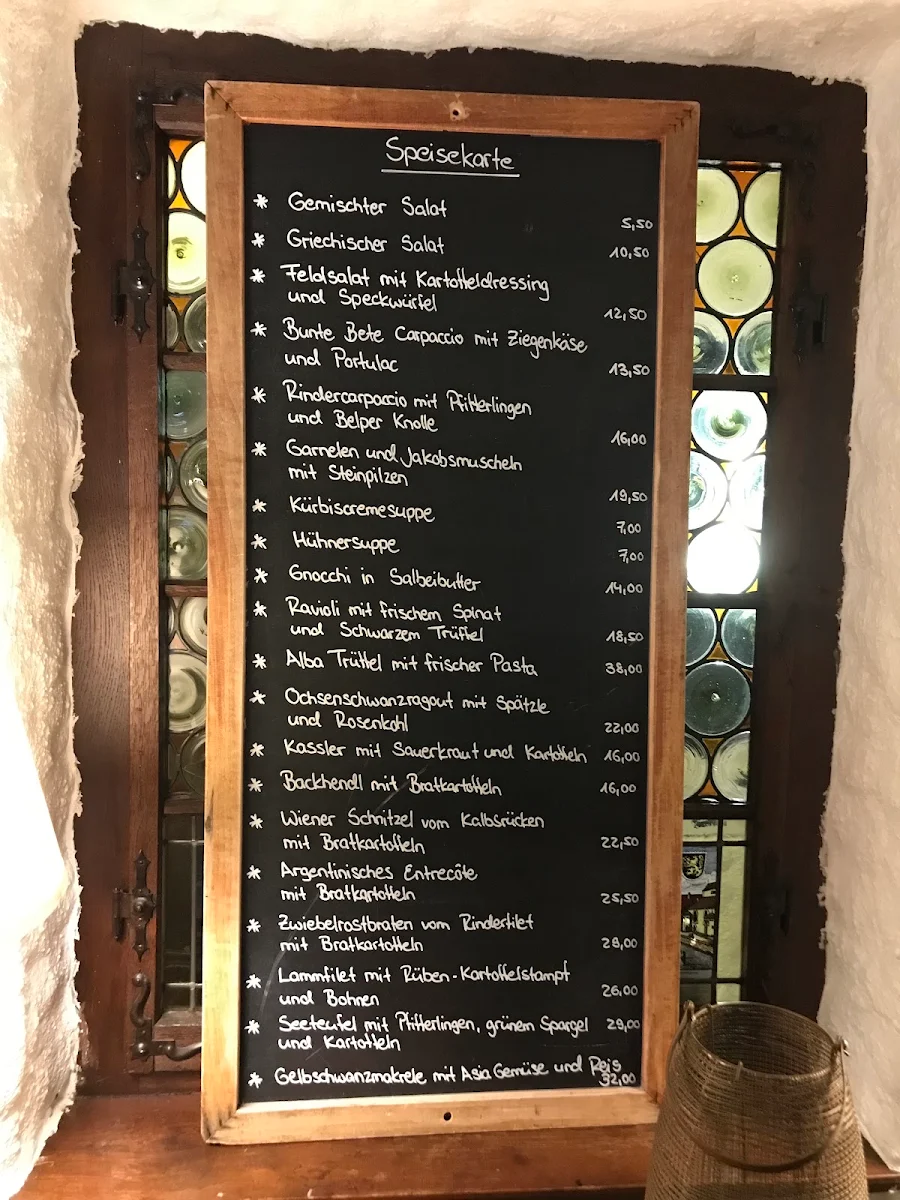 Speisekarte
* Gemischter Salat 5,50
* Griechischer Salat 10,50
* Feldsalat mit Kartoffeldressing
und Speckwürfel 12,50
* Bunte Bete Carpaccio mit Ziegenkäse
und Portulac 13,50
* Rindercarpaccio mit Pfifferlingen
und Belper Knolle 16,00
* Garnelen und Jakobsmuscheln
mit Steinpilzen 19,50
* Kürbiscremesuppe 7,00
* Hühnersuppe 7,00
* Gnocchi in Salbeibutter 14,00
* Ravioli mit frischem Spinat
und Schwarzem Trüffel 18,50
* Alba Trüffel mit frischer Pasta 38,00
* Ochsenschwanzragout mit Spätzle
und Rosenkohl 22,00
* Kassler mit Sauerkraut und Kartoffeln 16,00
* Backhendl mit Bratkartoffeln 16,00
* Wiener Schnitzel vom Kalbsrücken
mit Bratkartoffeln 22,50
* Argentinisches Entrecôte
mit Bratkartoffeln 25,50
* Zwiebelrostbraten vom Rinderfilet
mit Bratkartoffeln 28,00
* Lammfilet mit Rüben-Kartoffelstampf
und Bohnen 26,00
* Seeteufel mit Pfifferlingen, grünem Spargel 29,00
und Kartoffeln
* Gelbschwanzmakrele mit Asia Gemüse und Reis
32,00